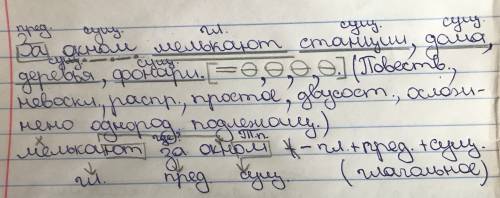 пред. сущ. гл. сущ. сущ.
За окном мелькают станции, дома,
сущ. сущ.
деревья, фонари. [=О,О,О,О] (Повеств.,
невоскл., распр., простое, двусост., ослож-
нено однород. подлежащ.)
Т.п.
мелькают за окном - гл. + пред. + сущ.
гл. пред сущ. (глагольное)